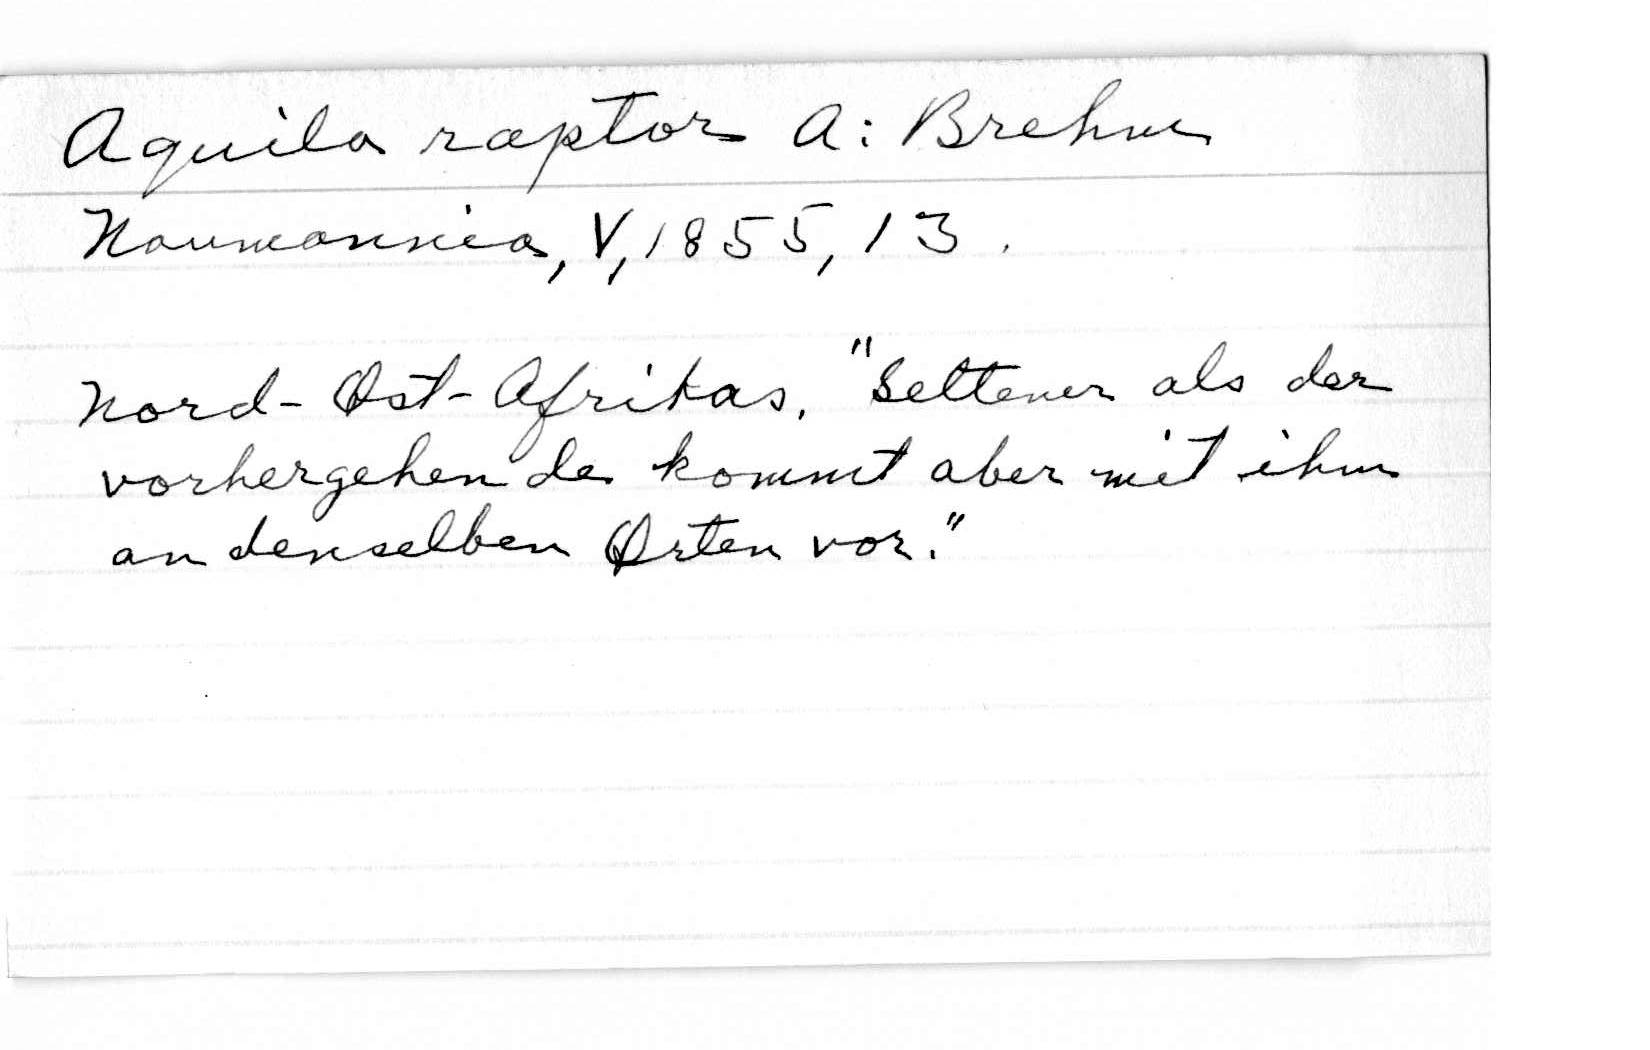 Aquila raptor A: Brehm
Naumannia, V, 1855, 13.
Nord-Ost-Afrikas. "Seltener als der
vorhergehende kommt aber mit ihm
an denselben Orten vor."